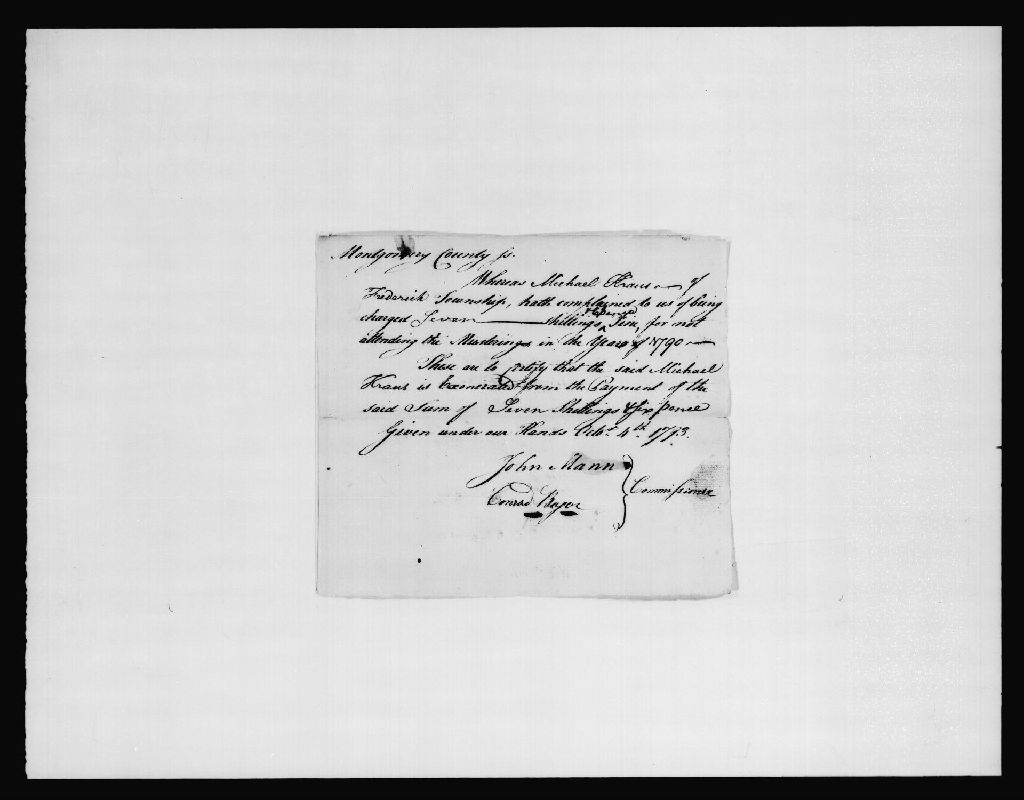 Montgomery County ss.
Whereas Michael Kraus of
Frederick Township, hath complained to us of being
charged Seven shillings & Sixpence Fine, for not
attending the Musterings in the Year of 1790
These are to Certify that the said Michael
Kraus is Exonerated from the Payment of the
said Sum of Seven Shillings & six pence
Given under our Hands Octr. 4th. 1793.
John Mann
Conrad Boyer
Commissioner